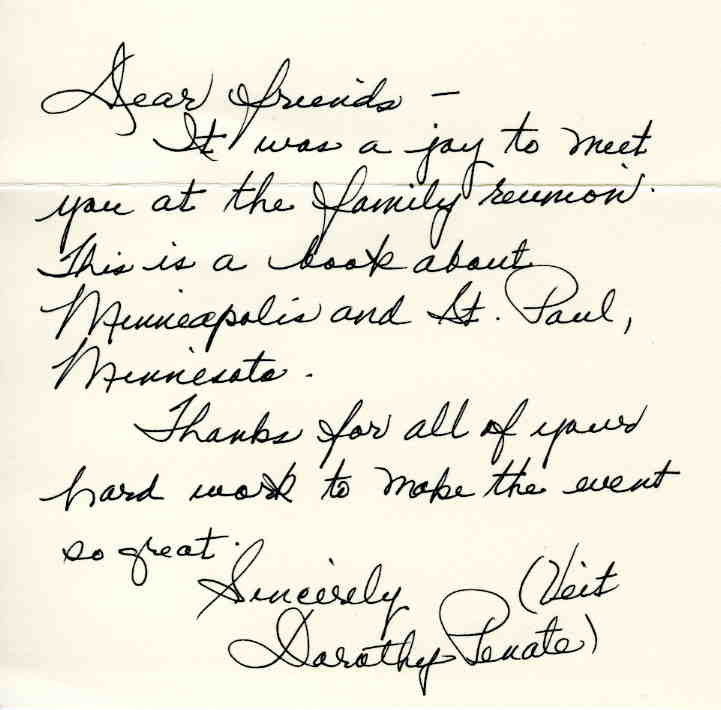 Dear friends –
It was a joy to meet
you at the family reunion.
This is a book about
Minneapolis and St. Paul,
Minnesota.
Thanks for all of your
hard work to make the event
so great.
Sincerely (Veit
Dorothy Penate)